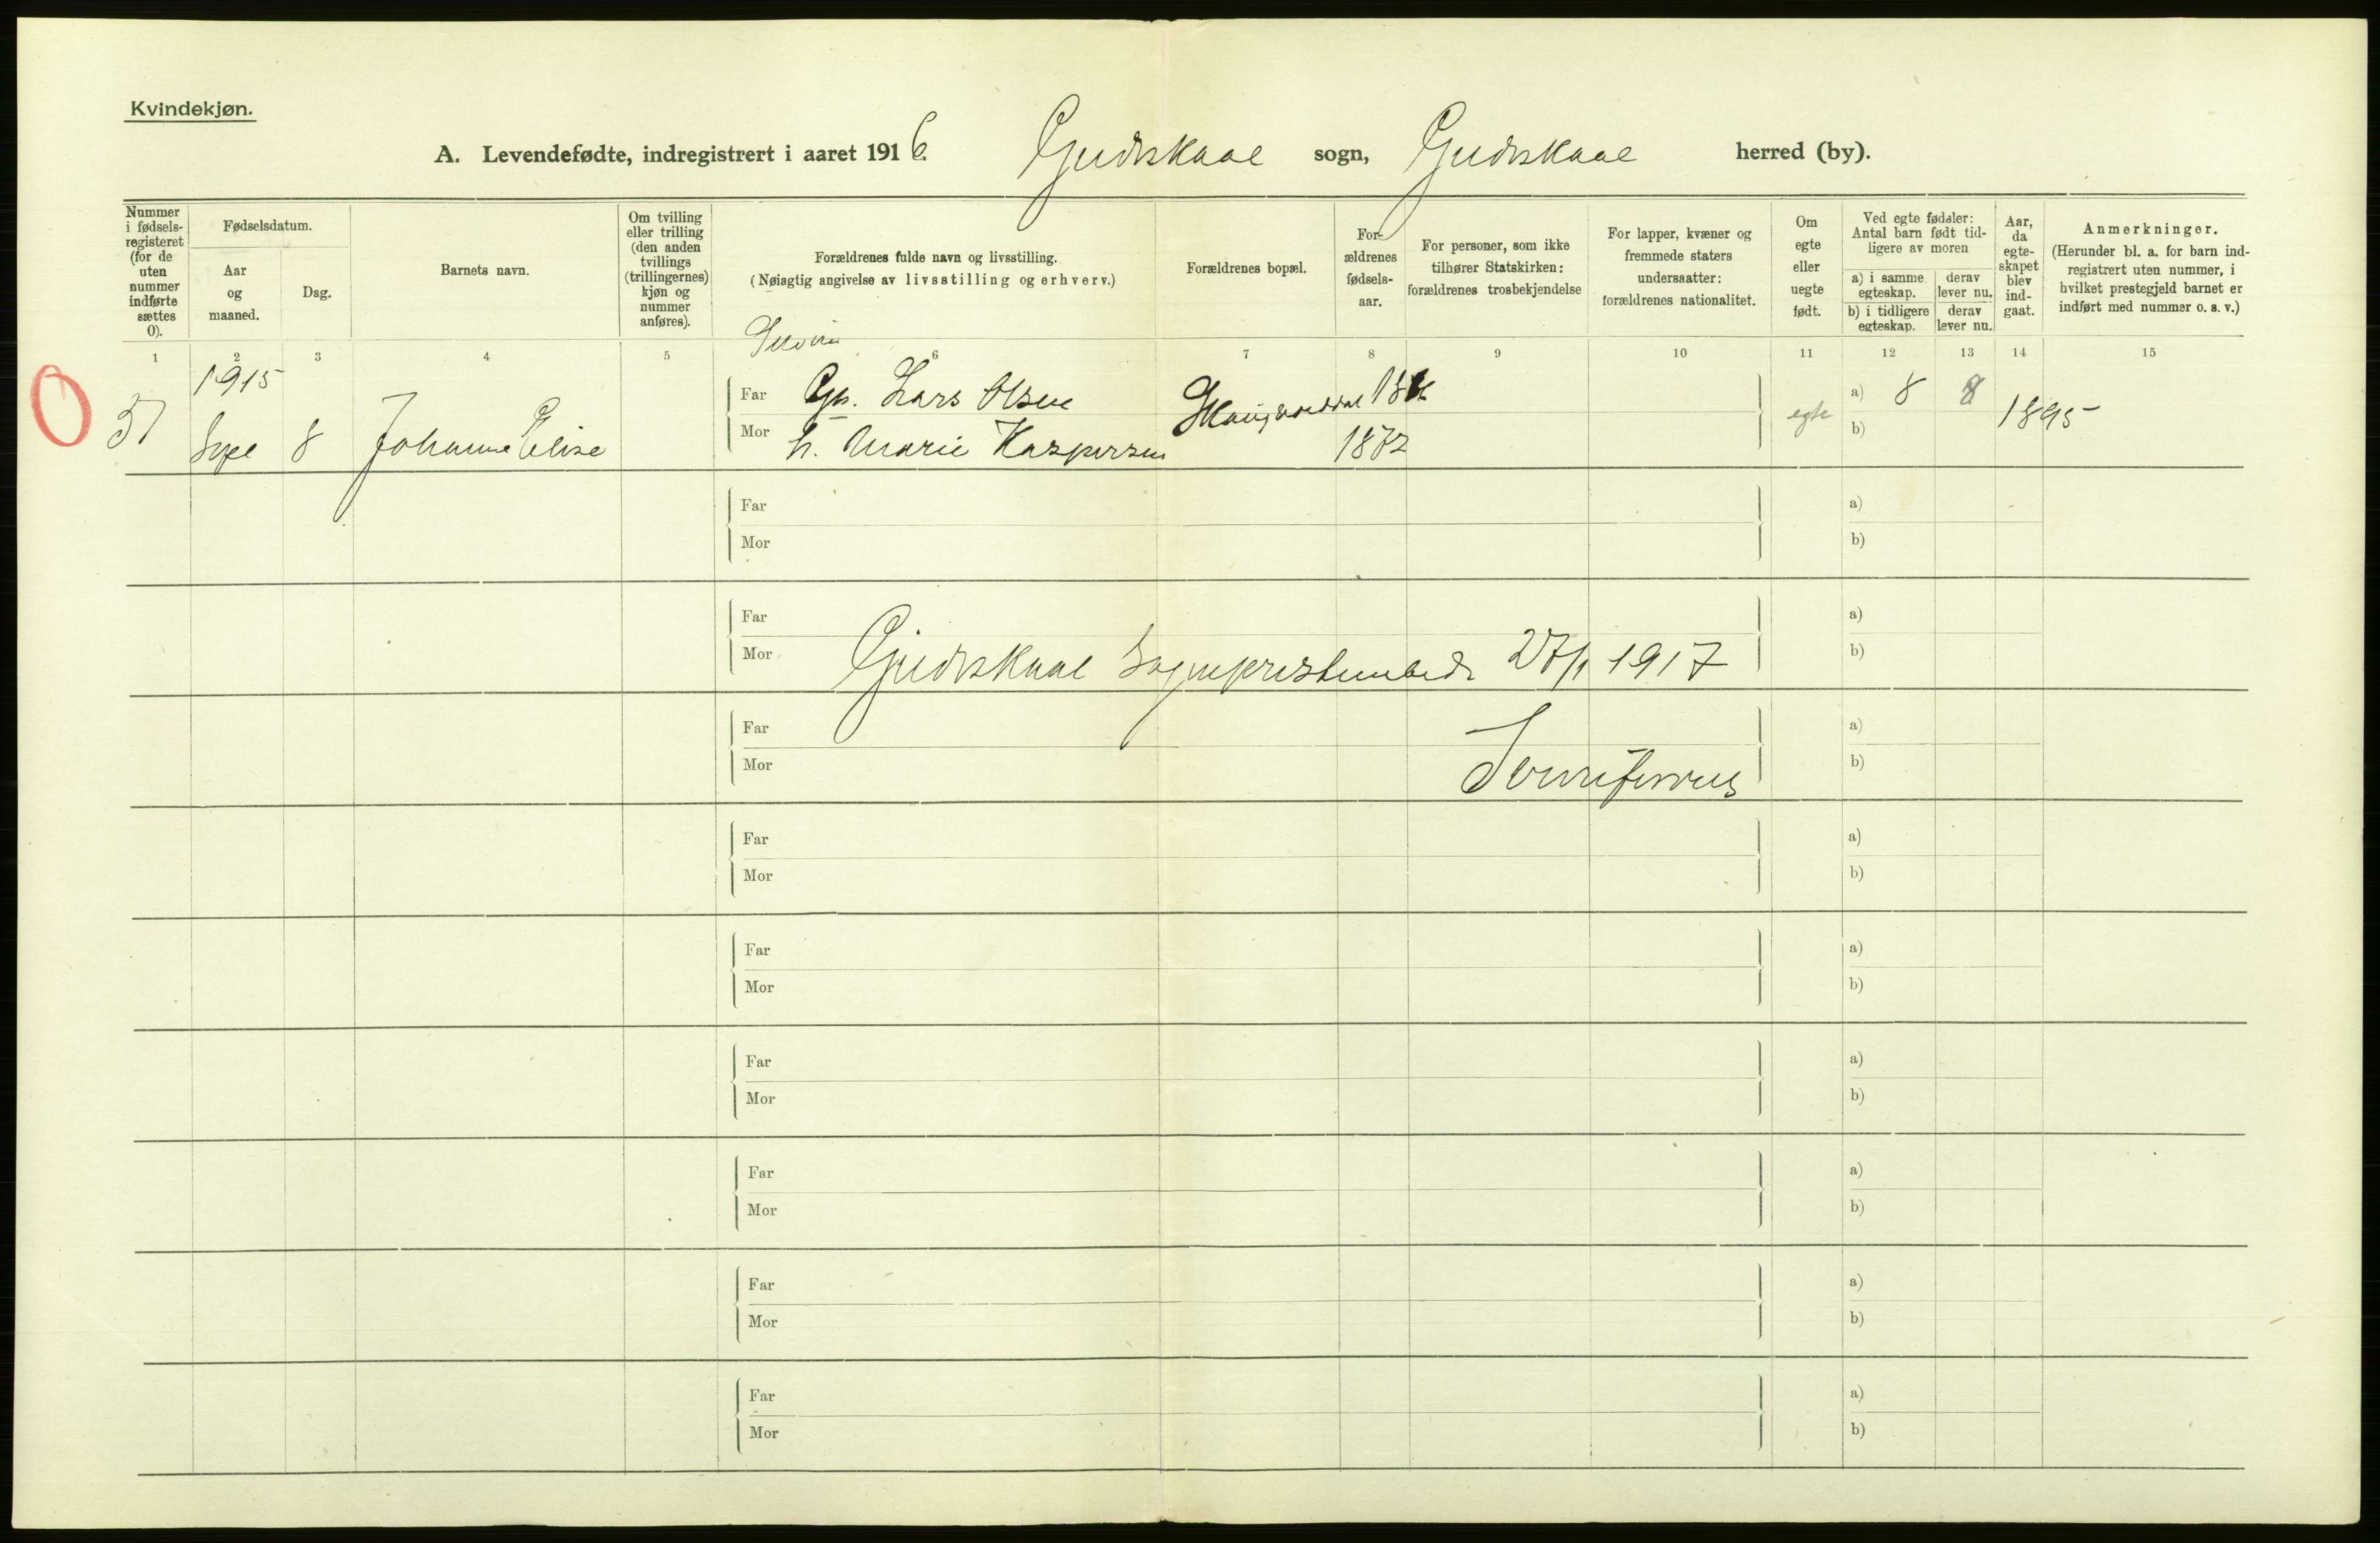 Kvindekjøn.
A. Levendefødte, indregistrert i aaret 1916. Gjerdskaal sogn, Gjerdskaal herred (by).
Nummer i fødsels-registeret (for de uten nummer indførte sættes 0).
Fødselsdatum.
Aar og maaned.
Dag.
Barnets navn.
Om tvilling eller trilling (den anden tvillings (trillingernes) kjøn og nummer anføres).
Forældrenes fulde navn og livsstilling.
(Nøiagtig angivelse av livsstilling og erhverv.)
Forældrenes bopæl.
For-ældrenes fødsels-aar.
For personer, som ikke tilhører Statskirken: forældrenes trosbekjendelse
For lapper, kvæner og fremmede staters undersaatter: forældrenes nationalitet.
Om egte eller uegte født.
Ved egte fødsler: Antal barn født tid-ligere av moren
a) i samme egteskap.
derav lever nu.
b) i tidligere egteskap.
derav lever nu.
Aar, da egte-skapet blev ind-gaat.
Anmerkninger.
(Herunder bl. a. for barn ind-registrert uten nummer, i hvilket prestegjeld barnet er indført med nummer o. s. v.)
1 2 3 4 5 6 7 8 9 10 11 12 13 14 15
0
1915
Far Gbr. Lars Olsen
a) 8 8
51 Sept 8 Johanne Elise
egte
1895
Mor h. Marie Kaspersen 1872
b)
Far a)
Mor b)
Far a)
Mor Gjerdskaal Sogneprestembede 27/1 1917 b)
Far a)
Mor b)
Far a)
Mor b)
Far a)
Mor b)
Far a)
Mor b)
Far a)
Mor b)
Far a)
Mor b)
Far a)
Mor b)